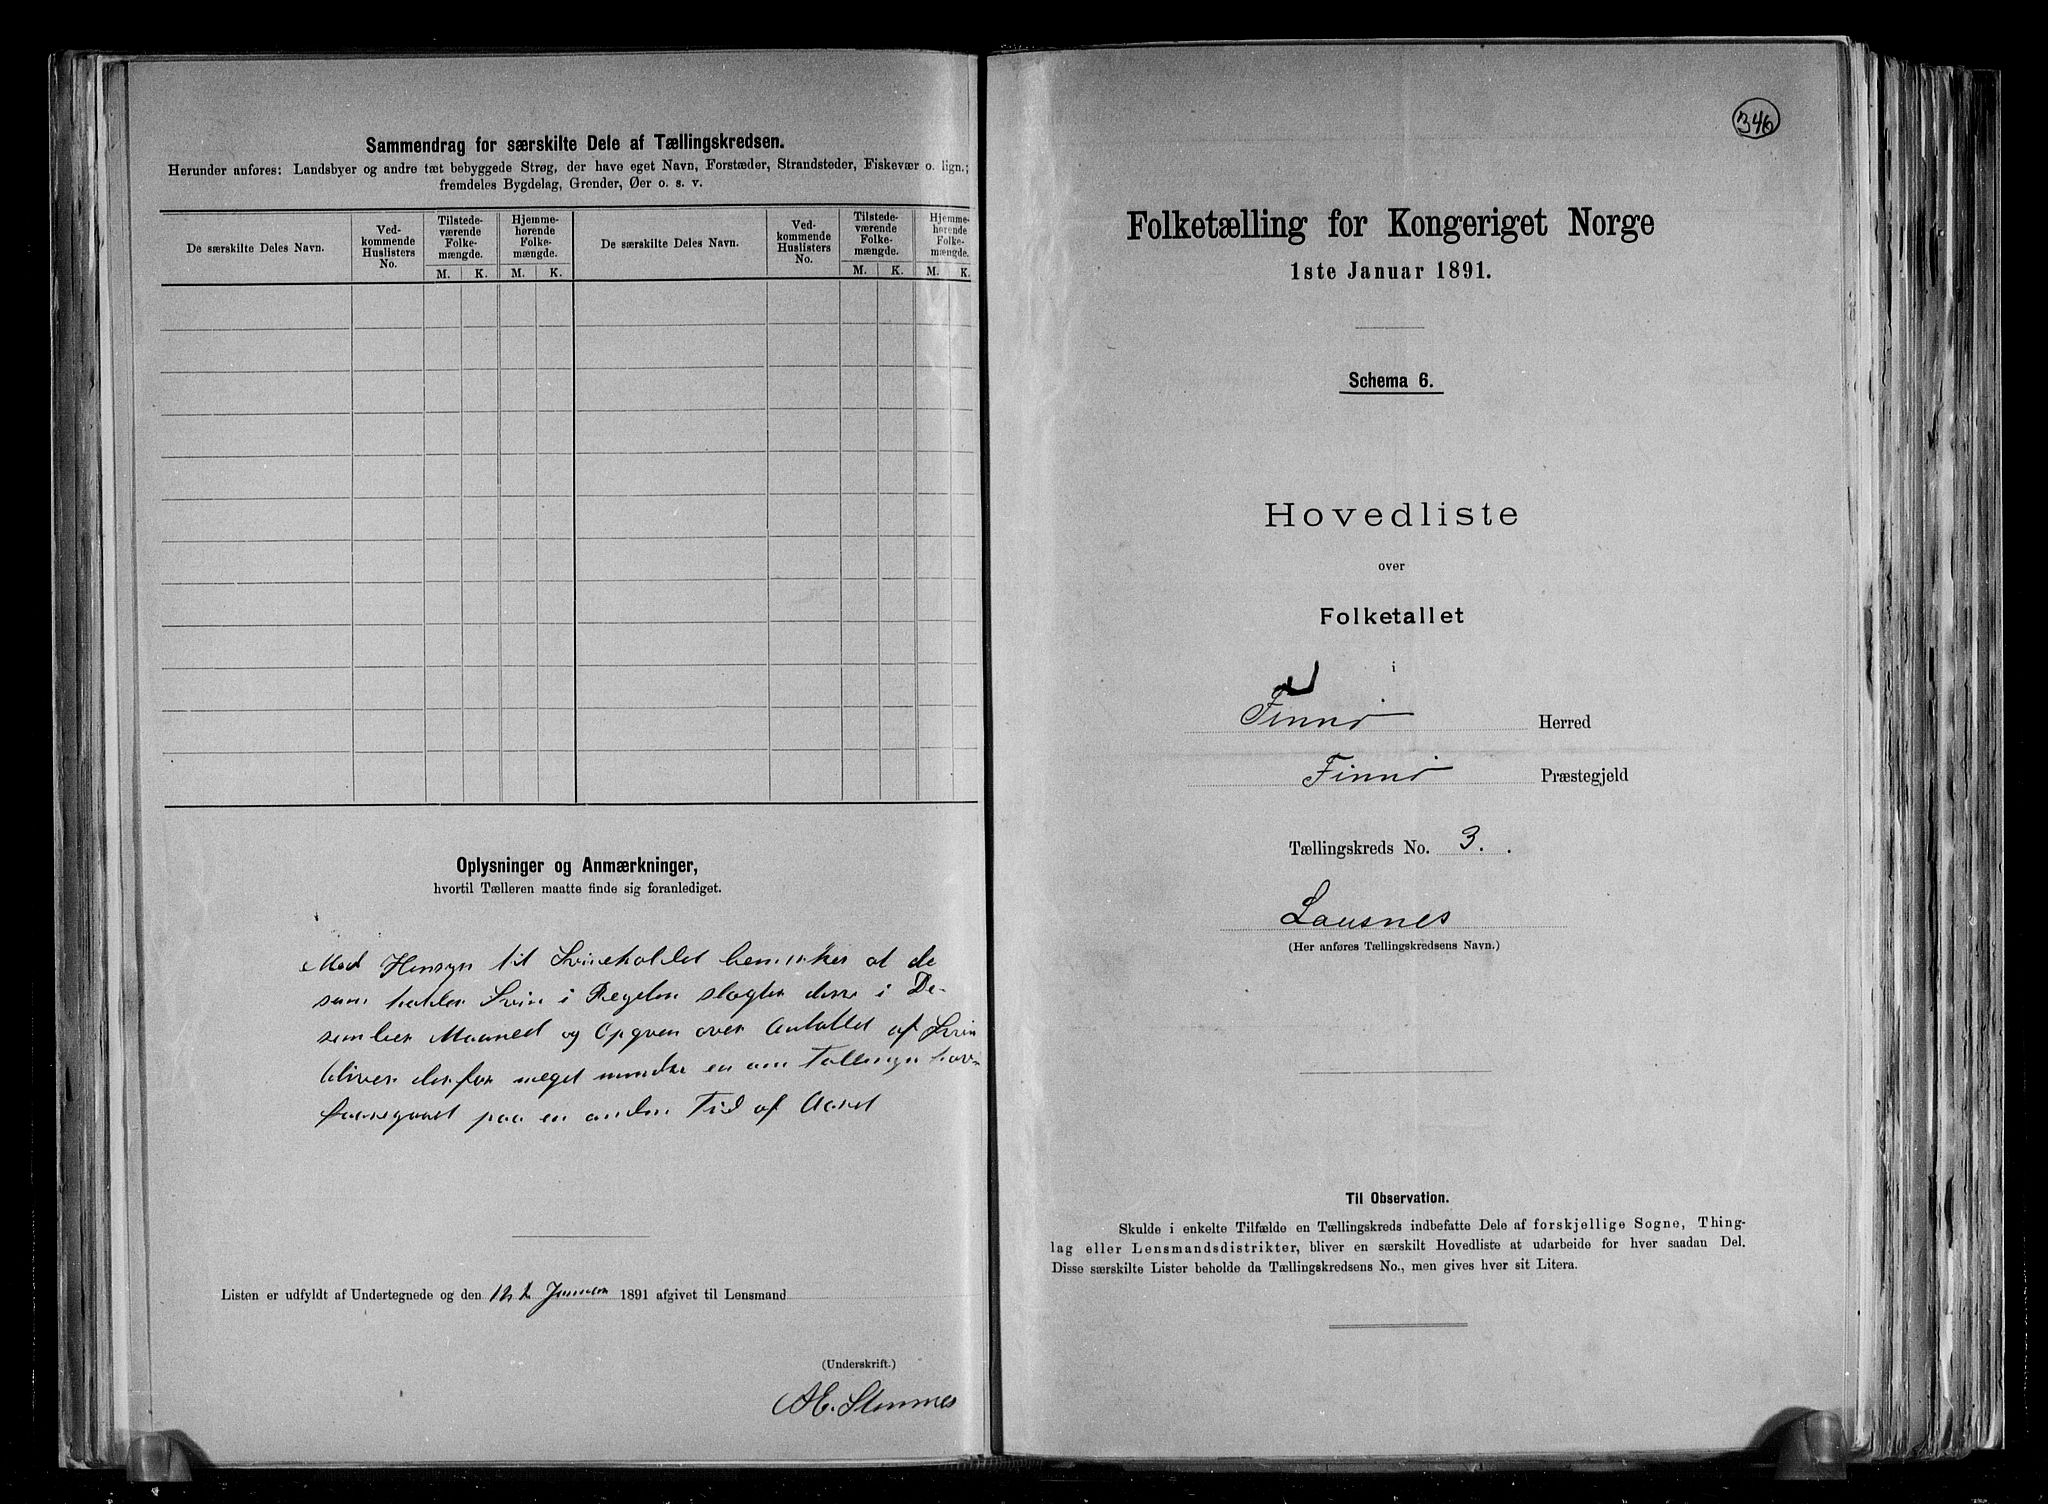 Sammendrag for særskilte Dele af Tællingskredsen.
Herunder anføres: Landsbyer og andre tæt bebyggede Strøg, der have eget Navn, Forstæder, Strandsteder, Fiskevær o. lign.;
fremdeles Bygdelag, Grender, Øer o. s. v.
De særskilte Deles Navn.
Ved-
kommende
Huslisters
No.
Tilstede-
værende
Folke-
mængde.
M. K.
Hjemme-
hørende
Folke-
mængde.
M. K.
De særskilte Deles Navn.
Ved-
kommende
Huslisters
No.
Tilstede-
værende
Folke-
mængde.
M. K.
Hjemme-
hørende
Folke-
mængde.
M. K.
Oplysninger og Anmærkninger,
hvortil Tælleren maatte finde sig foranlediget.
Med Hensyn til Svineholdet bemærkes at de
som holder Svin i Regelen slagter disse i De-
sember Maaned og Opgven over Antallet af Svin
bliver derfor meget mindre en om Tællingn hav
foregaaet paa en anden Tid af Aaret
Listen er udfyldt af Undertegnede og den 12 Januar 1891 afgivet til Lensmand
(Underskrift.)
AE. Stennes
346
Folketælling for Kongeriget Norge
1ste Januar 1891.
Schema 6.
Hovedliste
over
Folketallet
i
Finnø Herred
Finnø Præstegjeld
Tællingskreds No. 3.
Lausnes
(Her anføres Tællingskredsens Navn.)
Til Observation.
Skulde i enkelte Tilfælde en Tællingskreds indbefatte Dele af forskjellige Sogne, Thing-
lag eller Lensmandsdistrikter, bliver en særskilt Hovedliste at udarbeide for hver saadan Del.
Disse særskilte Lister beholde da Tællingskredsens No., men gives hver sit Litera.